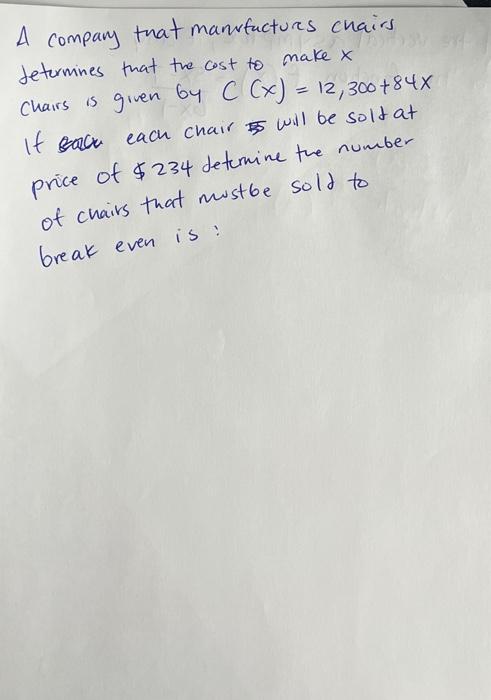 A company that manufactures chairs
determines that the cost to make x
chairs is given by C (x) = 12,300+84x
If each chair will be sold at
price of $234 determine the number
of chairs that must be sold to
break even is :